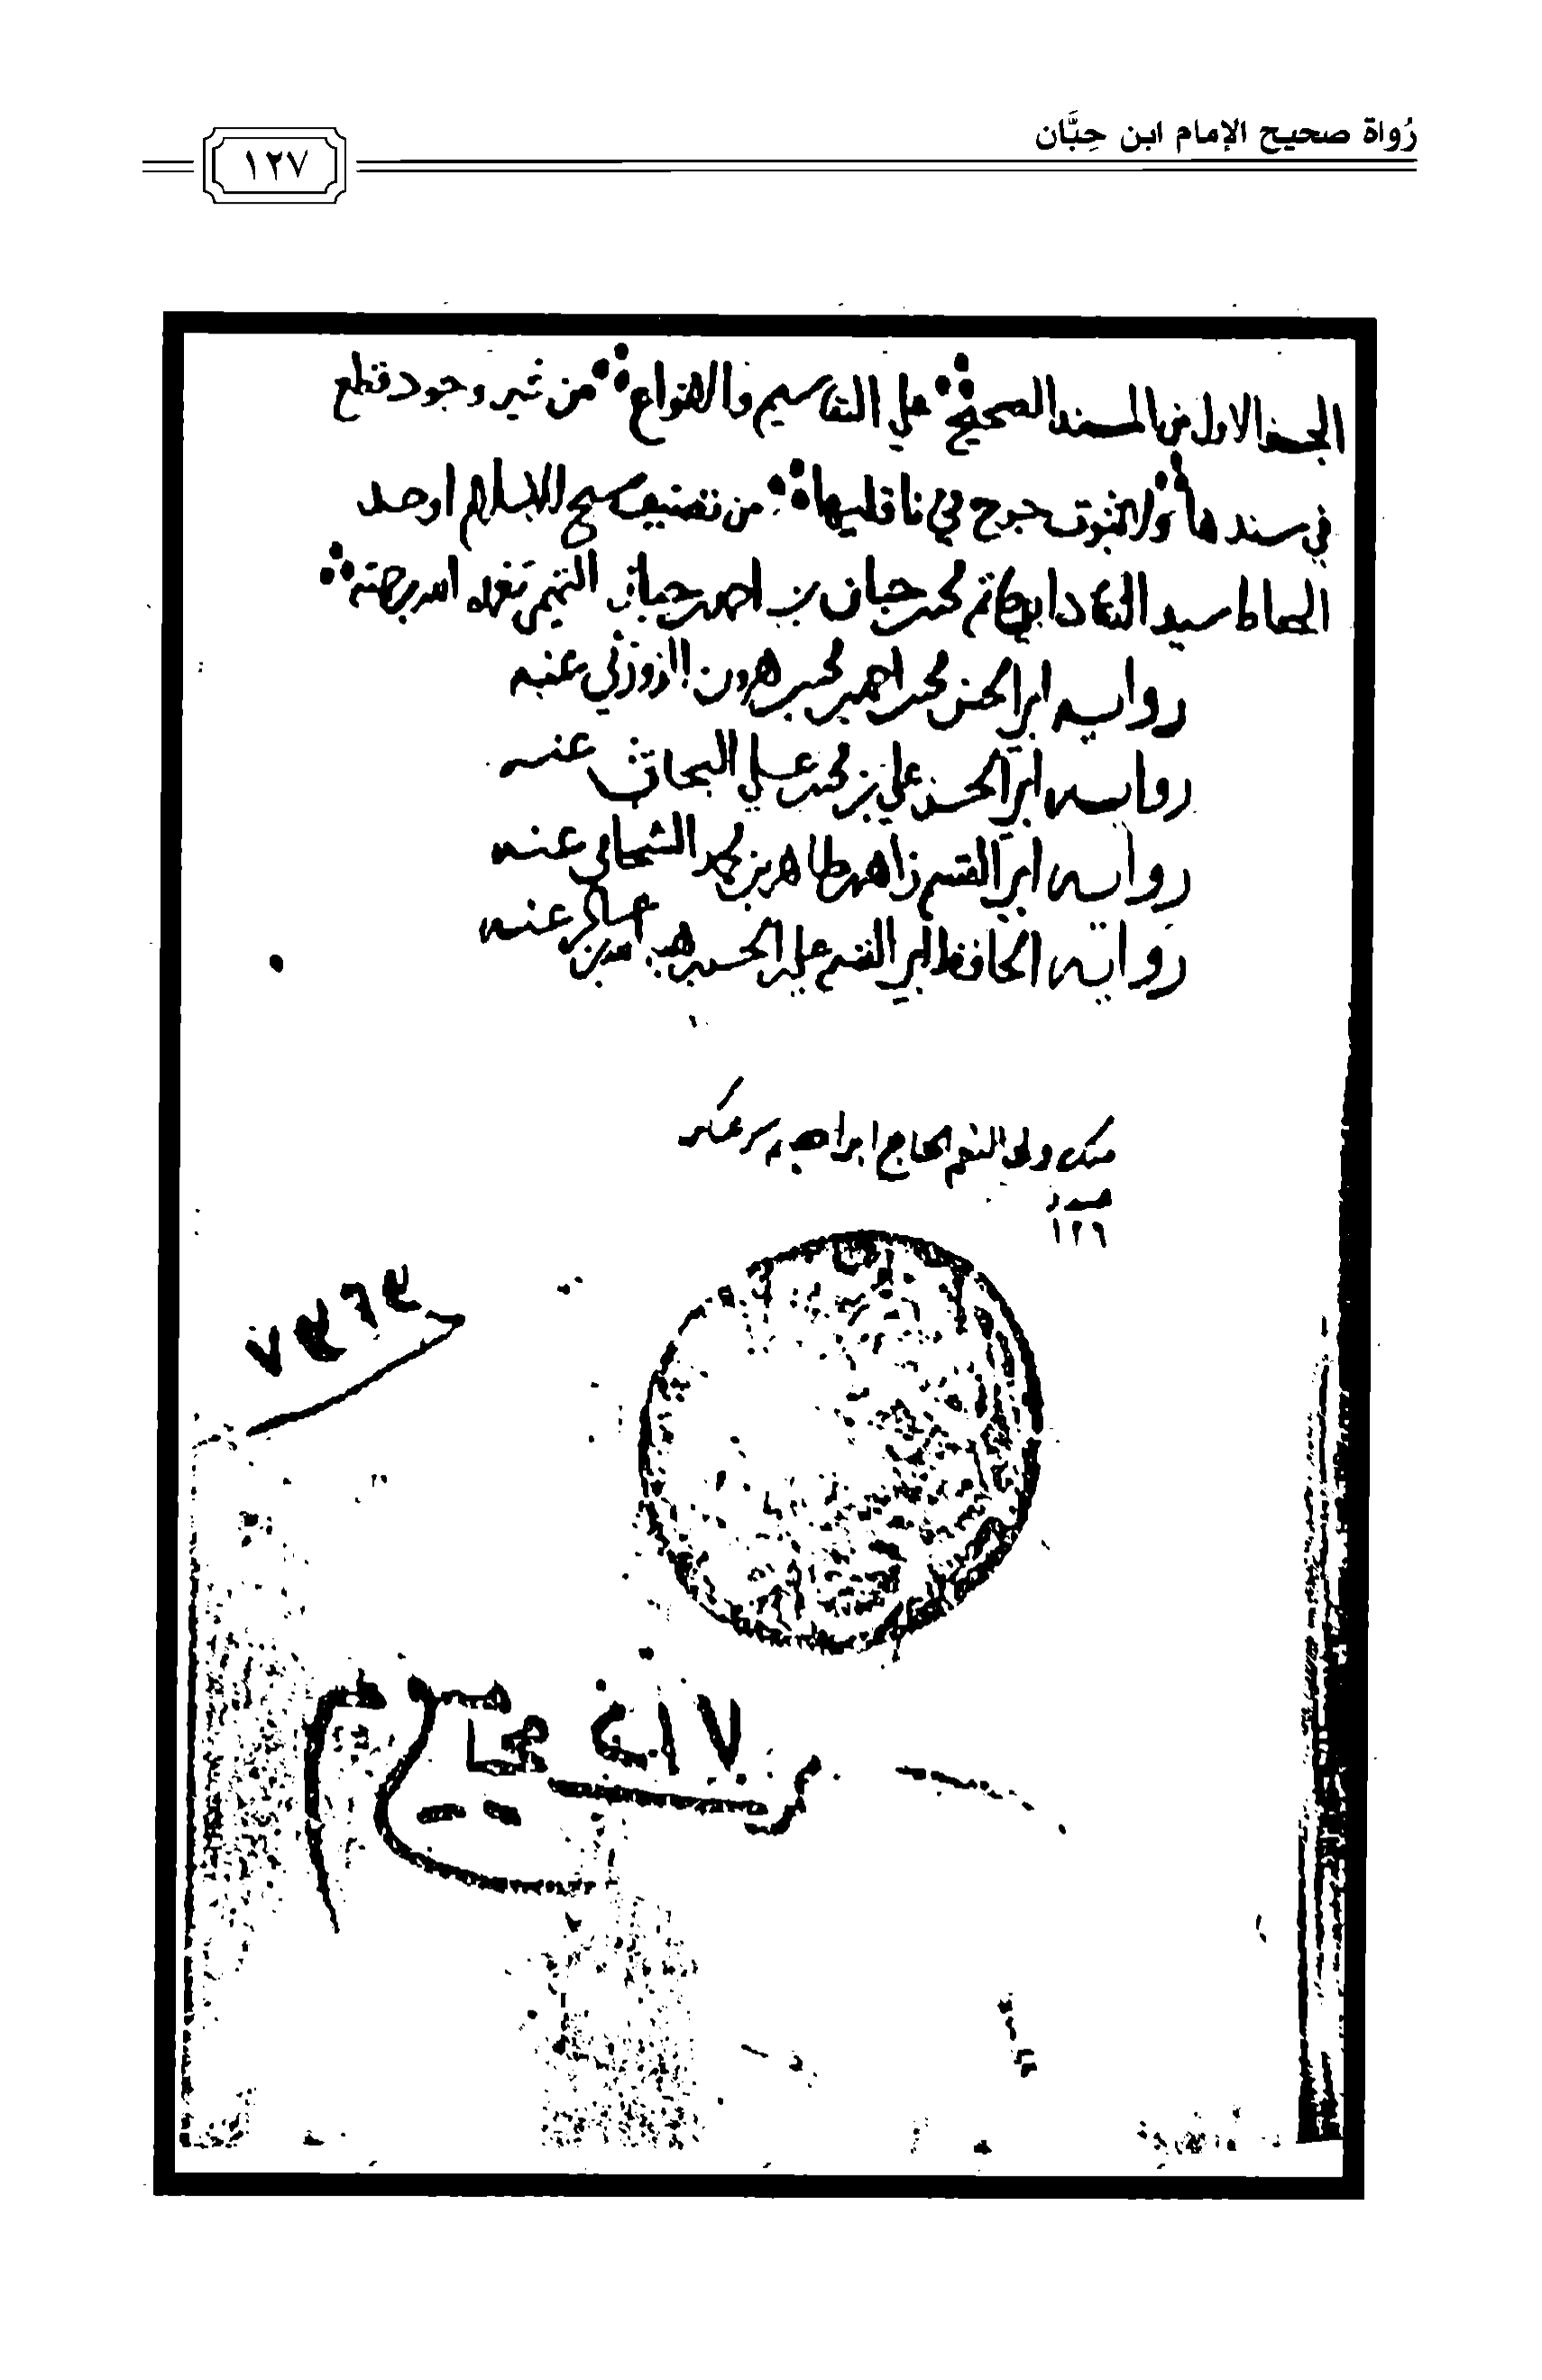 رُواة صحيح الإمام ابن حِبَّان
١٢٧
الجزء الاول من المسند الصحيح على التقاسيم والانواع من غير وجود قطع
في سندها ولا ثبوت جرح في ناقليها من تصنيف شيخ الاسلام اوحد
الحفاظ سيد النقاد ابي حاتم محمد حبان بن احمد حبان التميمي تغمده الله برحمته
رواية ابي الحسن محمد احمد محمد هرون الزوزني عنه
رواية ابي الحسن علي بن محمد علي البحاثي عنه
رواية ابي القسم زاهر طاهر بن محمد الشحامي عنه
رواية الحافظ ابي القسم علي الحسن هبة الله بن عساكر عنه
الحاج ابراهيم سر عسكر